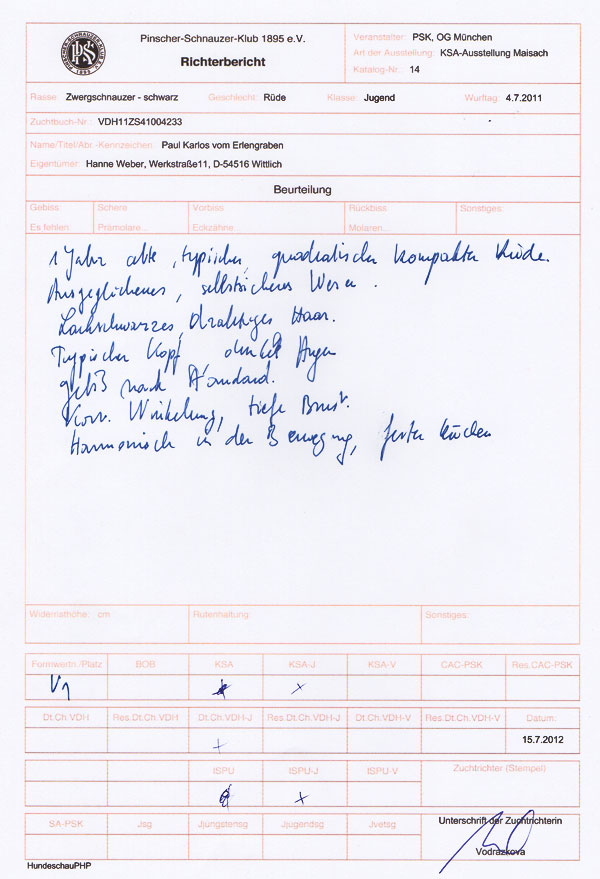 PINSCHER-SCHNAUZER-KLUB E.V.
PSK
1895
Pinscher-Schnauzer-Klub 1895 e.V.
Richterbericht
Veranstalter: PSK, OG München
Art der Ausstellung: KSA-Ausstellung Maisach
Katalog-Nr.: 14
Rasse: Zwergschnauzer - schwarz Geschlecht: Rüde Klasse: Jugend Wurftag: 4.7.2011
Zuchtbuch-Nr.: VDH11ZS41004233
Name/Titel/Abr.-Kennzeichen: Paul Karlos vom Erlengraben
Eigentümer: Hanne Weber, Werkstraße11, D-54516 Wittlich
Beurteilung
Gebiss Schere Vorbiss Rückbiss Sonstiges:
Es fehlen: Prämolare... Eckzähne: Molaren...
1 Jahr alte, typischer, quadratischer kompakter Rüde.
Ausgeglichenes, selbstsicheres Wesen.
Lackschwarzes, drahtiges Haar.
Typischer Kopf dunkel Augen
gebiß nach Standard.
Korr. Winkelung, tiefe Brust.
Harmonisch in der Bewegung, fester Rücken
Widerristhöhe: cm Rutenhaltung: Sonstiges:
Formwertn./Platz BOB KSA KSA-J KSA-V CAC-PSK Res.CAC-PSK
V1 x
Dt.Ch.VDH Res.Dt.Ch.VDH Dt.Ch.VDH-J Res.Dt.Ch.VDH-J Dt.Ch.VDH-V Res.Dt.Ch.VDH-V Datum:
x 15.7.2012
ISPU ISPU-J ISPU-V Zuchtrichter (Stempel)
x
SA-PSK Jsg Jjüngstensg Jjugendsg Jvetsg
Unterschrift der Zuchtrichterin
Vodrazkova
HundeschauPHP